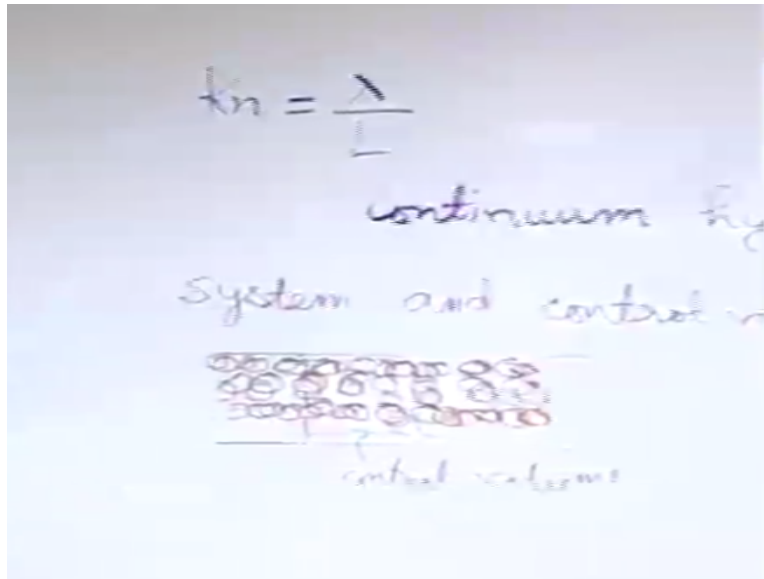 Kn = λ / L
continuum hy
system and control v
control volume